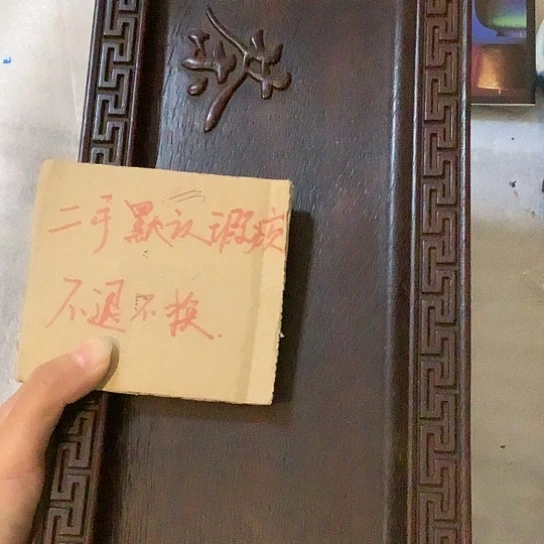 茶
二手默认瑕疵
不退不换.